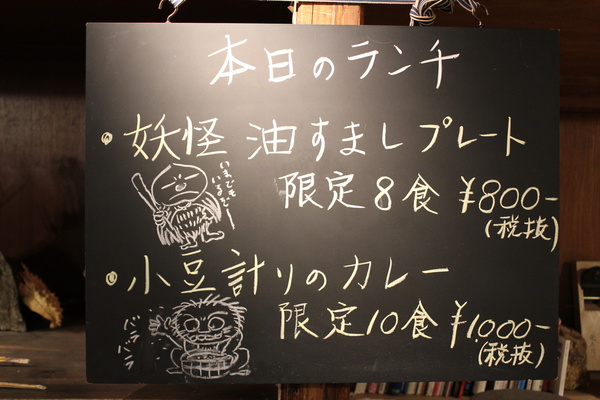 本日のランチ
・妖怪 油すましプレート
いまでも
いるぞー
限定8食 ¥800-
(税抜)
・小豆計りのカレー
バラ
バラ
限定10食 ¥1,000-
(税抜)